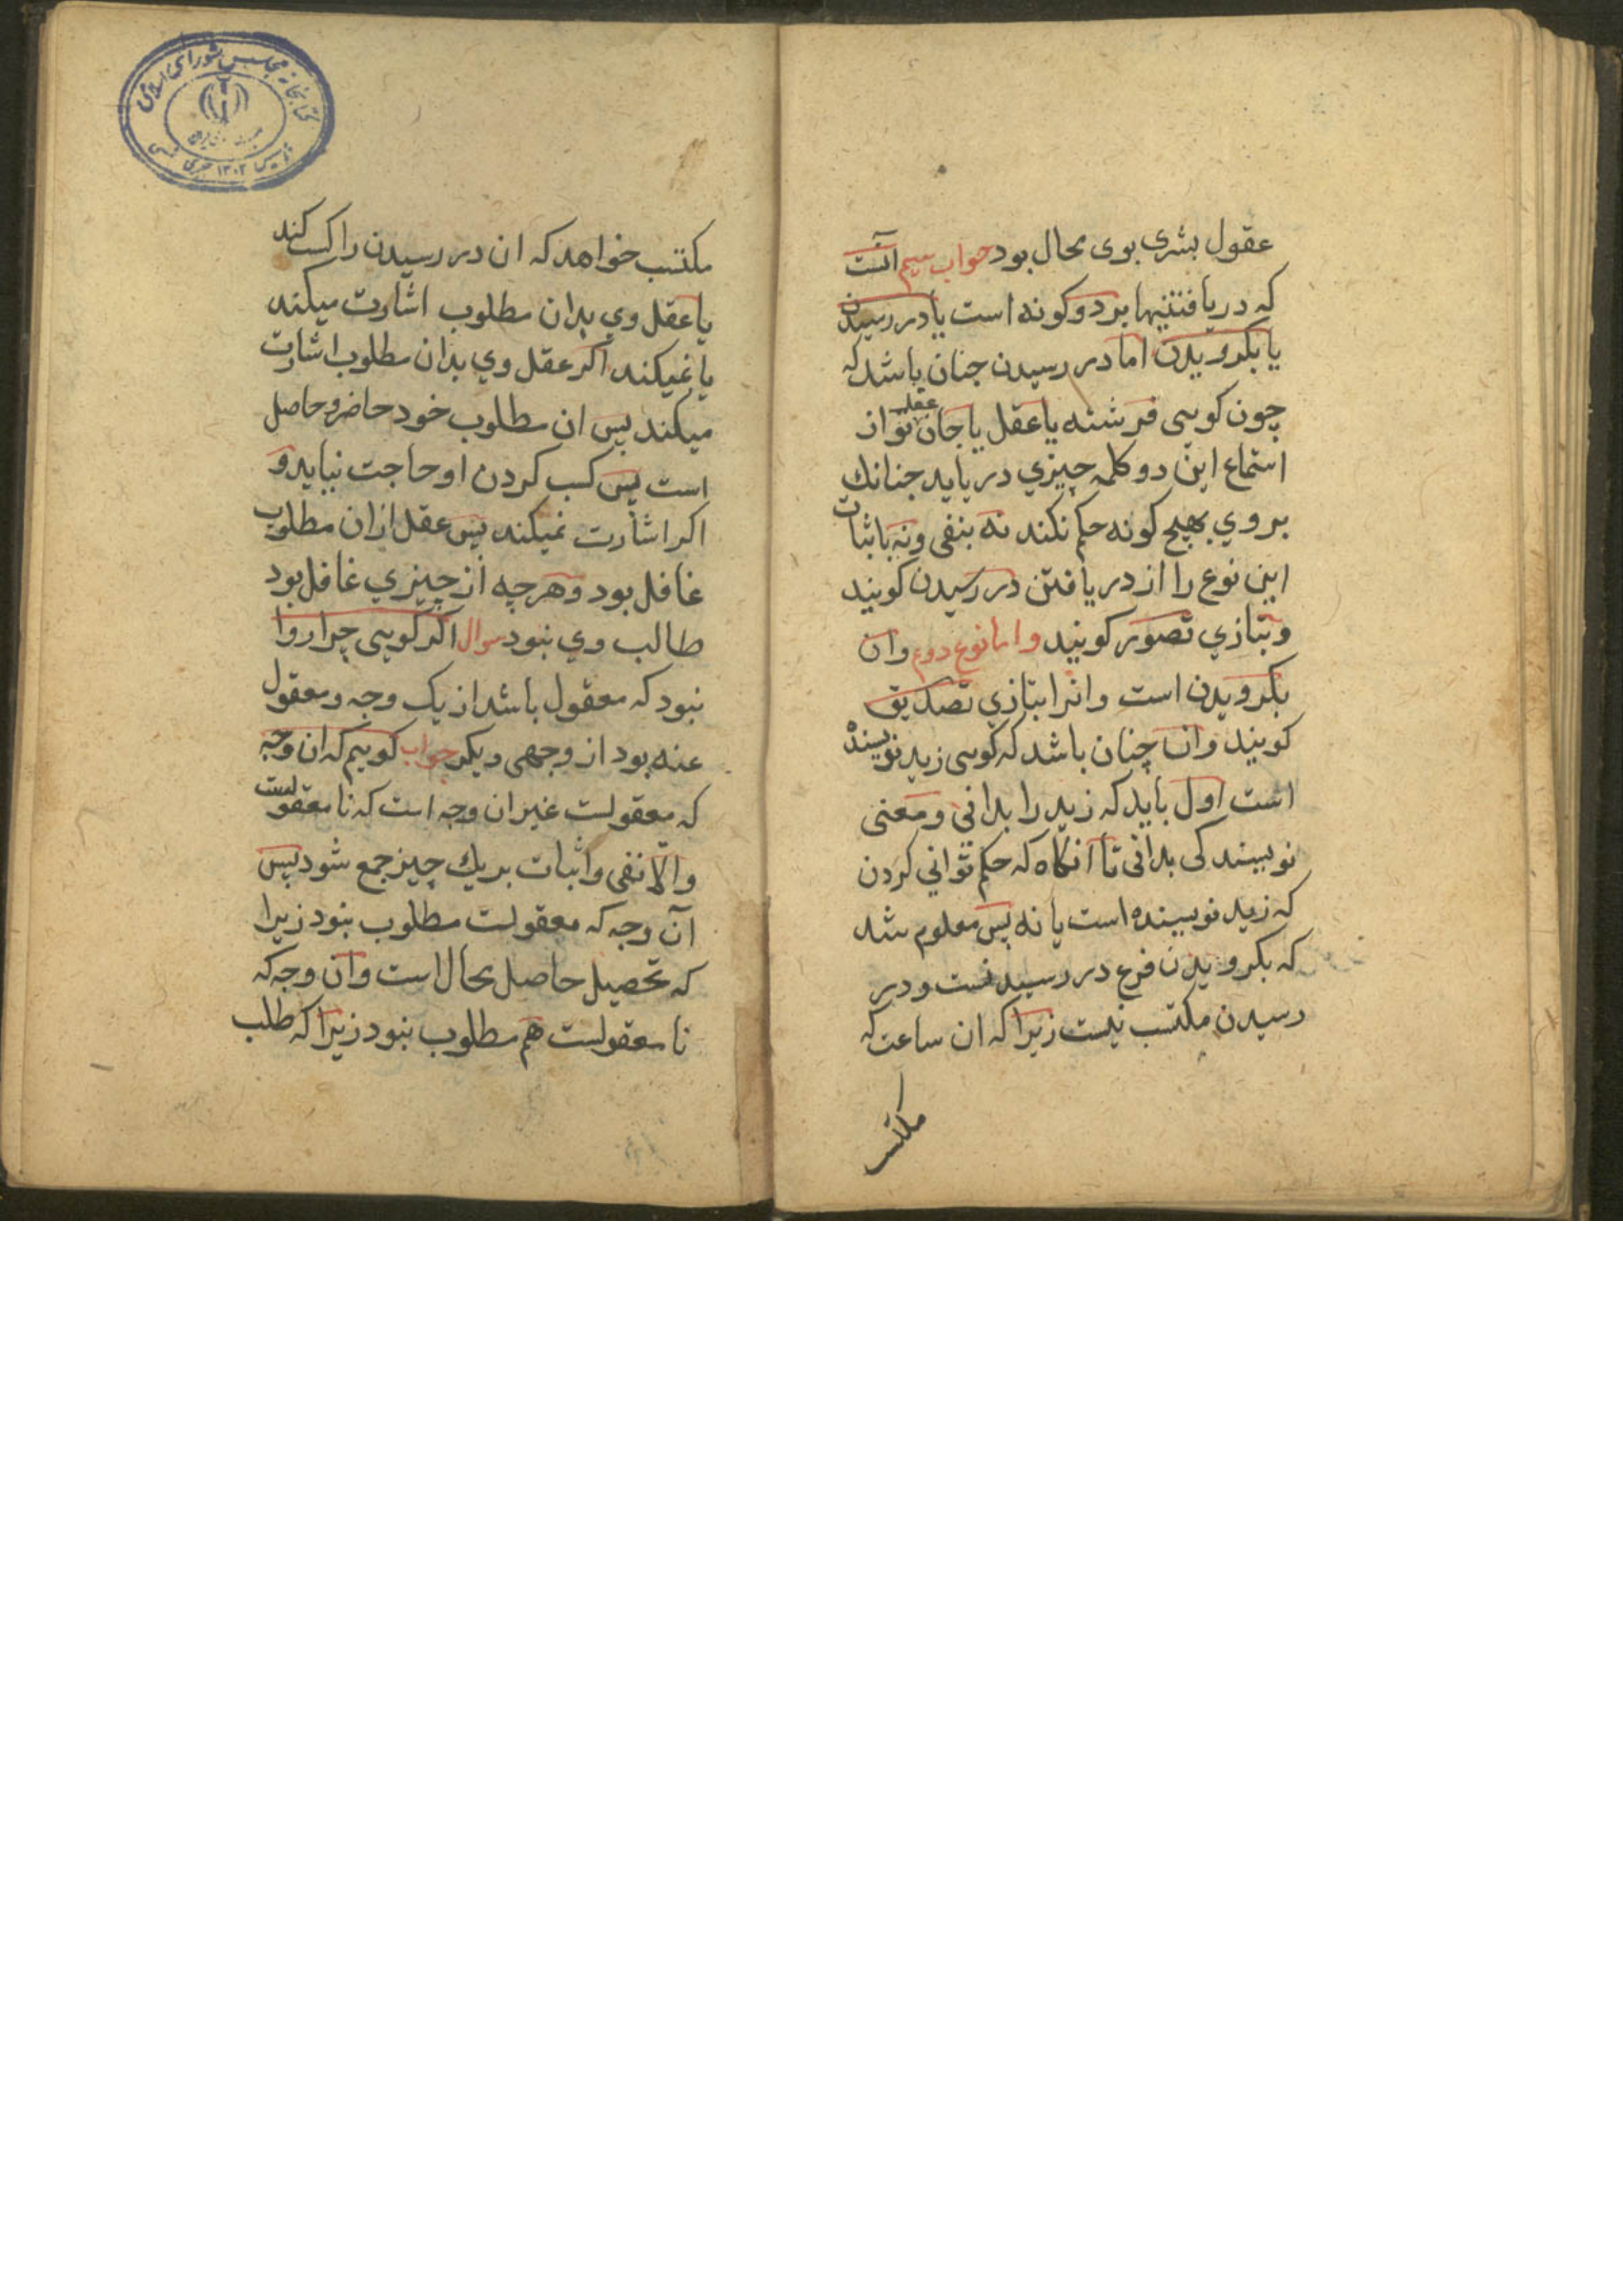 عقول بشری بوی محال بود جواب سیم آنست
که دریافتنیها بردوکونه است یا در رسیدن
یا بکرویدن اما در رسیدن چنان باشد که
چون کویی فرشته یا عقل یا جان عقل تو از
استماع این دو کلمه چیزی دریابد چنانك
بروی بهیچ کونه حکم نکند نه بنفی و نه باثبات
این نوع را از دریافتن در رسیدن کویند
و بتازی تصور کویند و اما نوع دوم وان
بکرویدن است وانرا بتازی تصدیق
کویند وان چنان باشد که کویی زید نویسنده
است اول باید که زید را بدانی و معنی
نویسندکی بدانی تا آنکاه که حکم توانی کردن
که زید نویسنده است یا نه پس معلوم شد
که بکرویدن فرع در رسیدنست و در
رسیدن مکتسب نیست زیرا که ان ساعت که
مکتسب
کتابخانه مجلس شورای اسلامی
تاسیس ۱۳۰۲ هجری شمسی
مکتسب خواهد که ان در رسیدن را کسب کند
یا عقل وی بدان مطلوب اشارت میکند
یا نمیکند اکر عقل وی بدان مطلوب اشارت
میکند پس ان مطلوب خود حاضر و حاصل
است پس کسب کردن او حاجت نیاید و
اکر اشارت نمیکند پس عقل ازان مطلوب
غافل بود و هرچه از چیزی غافل بود
طالب وی نبود سوال اکر کویی چرا روا
نبود که معقول باشد از یک وجه و معقول
عنه بود از وجهی دیکر جواب کوییم که ان وجه
که معقولست غیر ان وجه است که نامعقولست
والا نفی واثبات بر یك چیز جمع شود پس
آن وجه که معقولست مطلوب نبود زیرا
که تحصیل حاصل محال است وان وجه که
نامعقولست هم مطلوب نبود زیرا که طلب